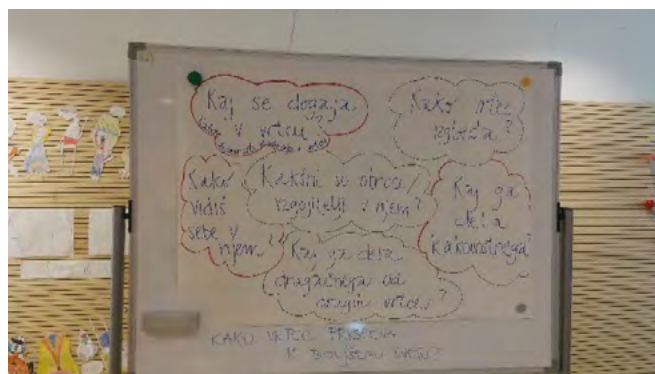 Kaj se dogaja
v vrtcu?
Kako
izgleda?
Kako
vidiš
sebe v
njem?
Kakšni so otroci/
vzgojitelji v njem?
Kaj ga
dela
kakovostnega
Kaj ga dela
drugačnega od
drugih vrtcev?
KAKO VRTEC PRISPEVA
K BOLJŠEMU SVETU?